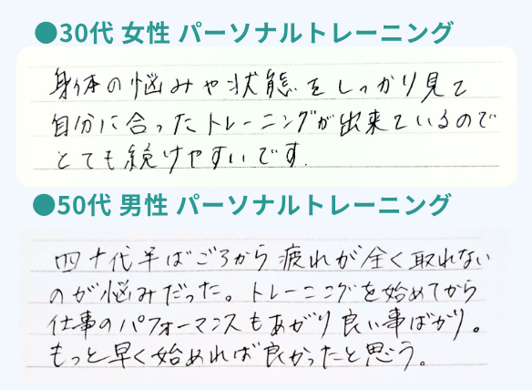 ●30代 女性 パーソナルトレーニング
身体の悩みや状態をしっかり見て
自分に合ったトレーニングが出来ているので
とても続けやすいです.
●50代 男性 パーソナルトレーニング
四十代半ばごろから疲れが全く取れない
のが悩みだった。トレーニングを始めてから
仕事のパフォーマンスもあがり良い事ばかり。
もっと早く始めれば良かったと思う。